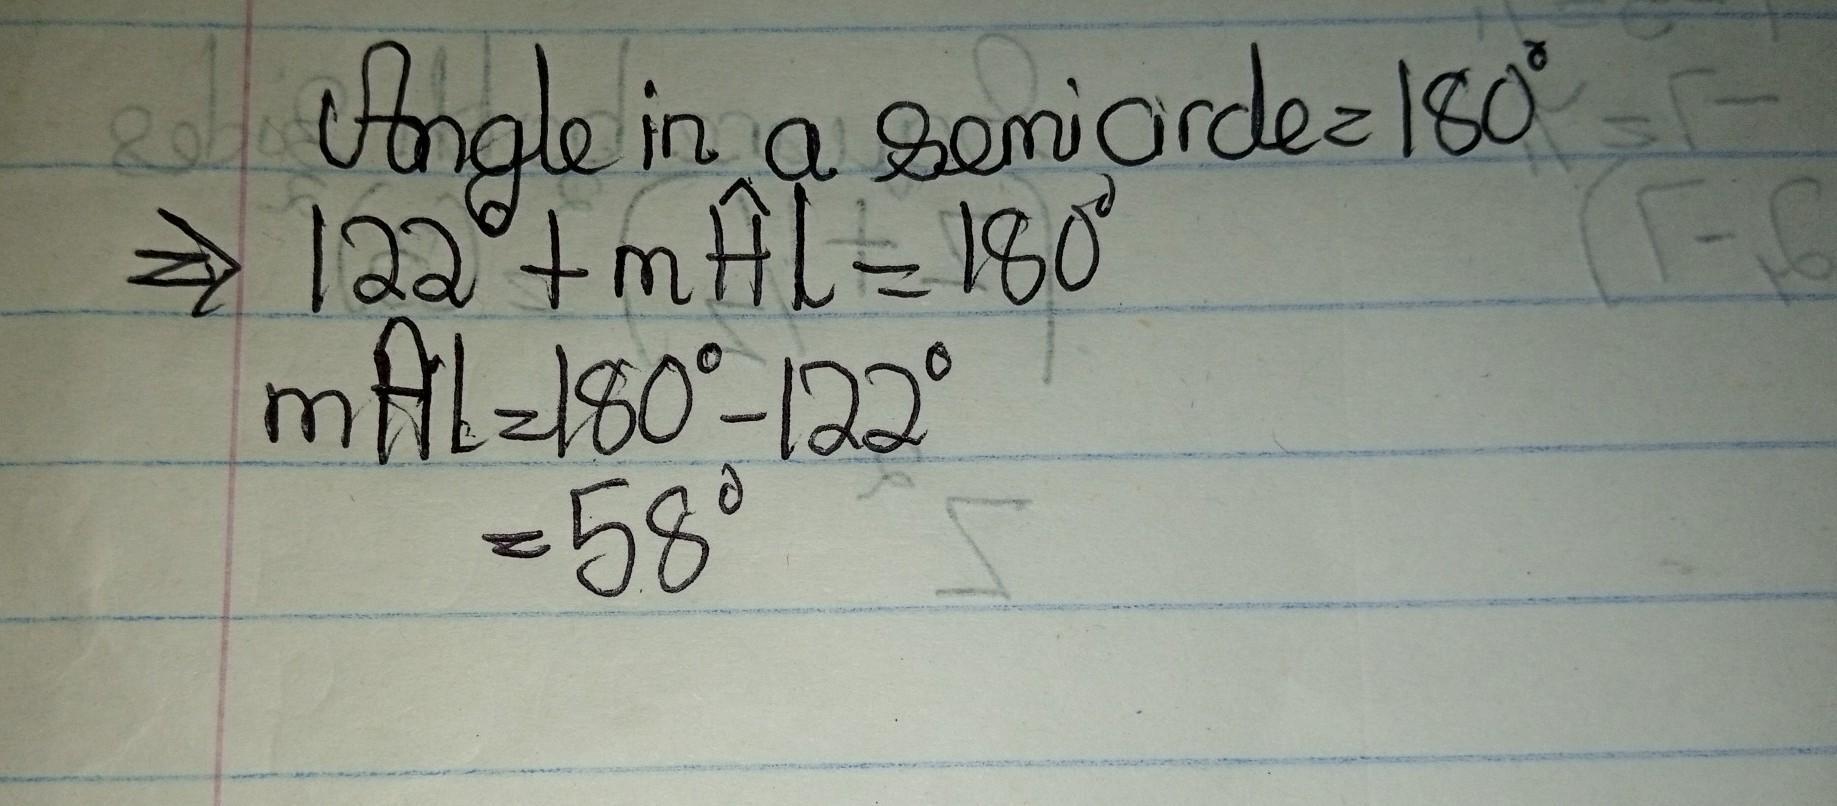 Angle in a semicircle = 180°
⇒ 122° + mĤL = 180°
mĤL = 180° - 122°
= 58°